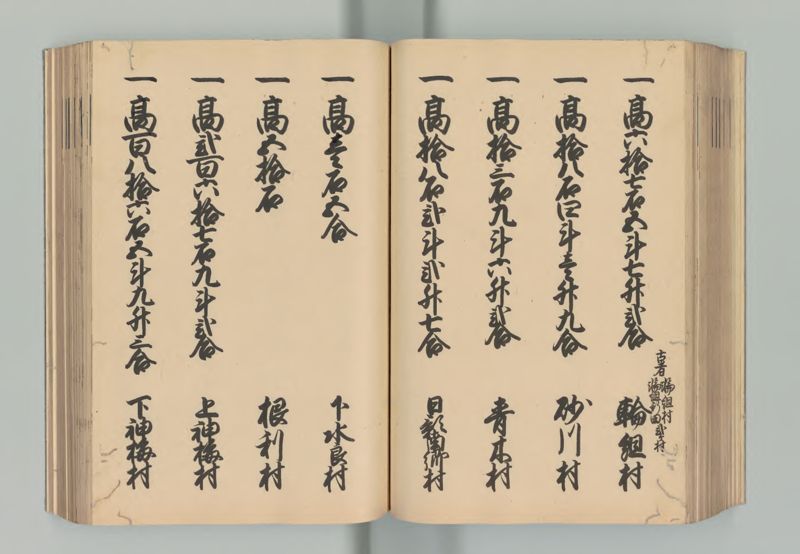 一高六拾七石五斗七升弐合 輪組村
古者輪組村
輪組新田弐ヶ村
一高拾八石四斗壱升九合 砂川村
一高拾三石九斗六升弐合 青木村
一高拾八石弐斗弐升七合
一高壱石五合
一高五拾石 根利村
一高弐百六拾七石九斗弐合 上神梅村
一高百八拾六石五斗九升三合 下神梅村